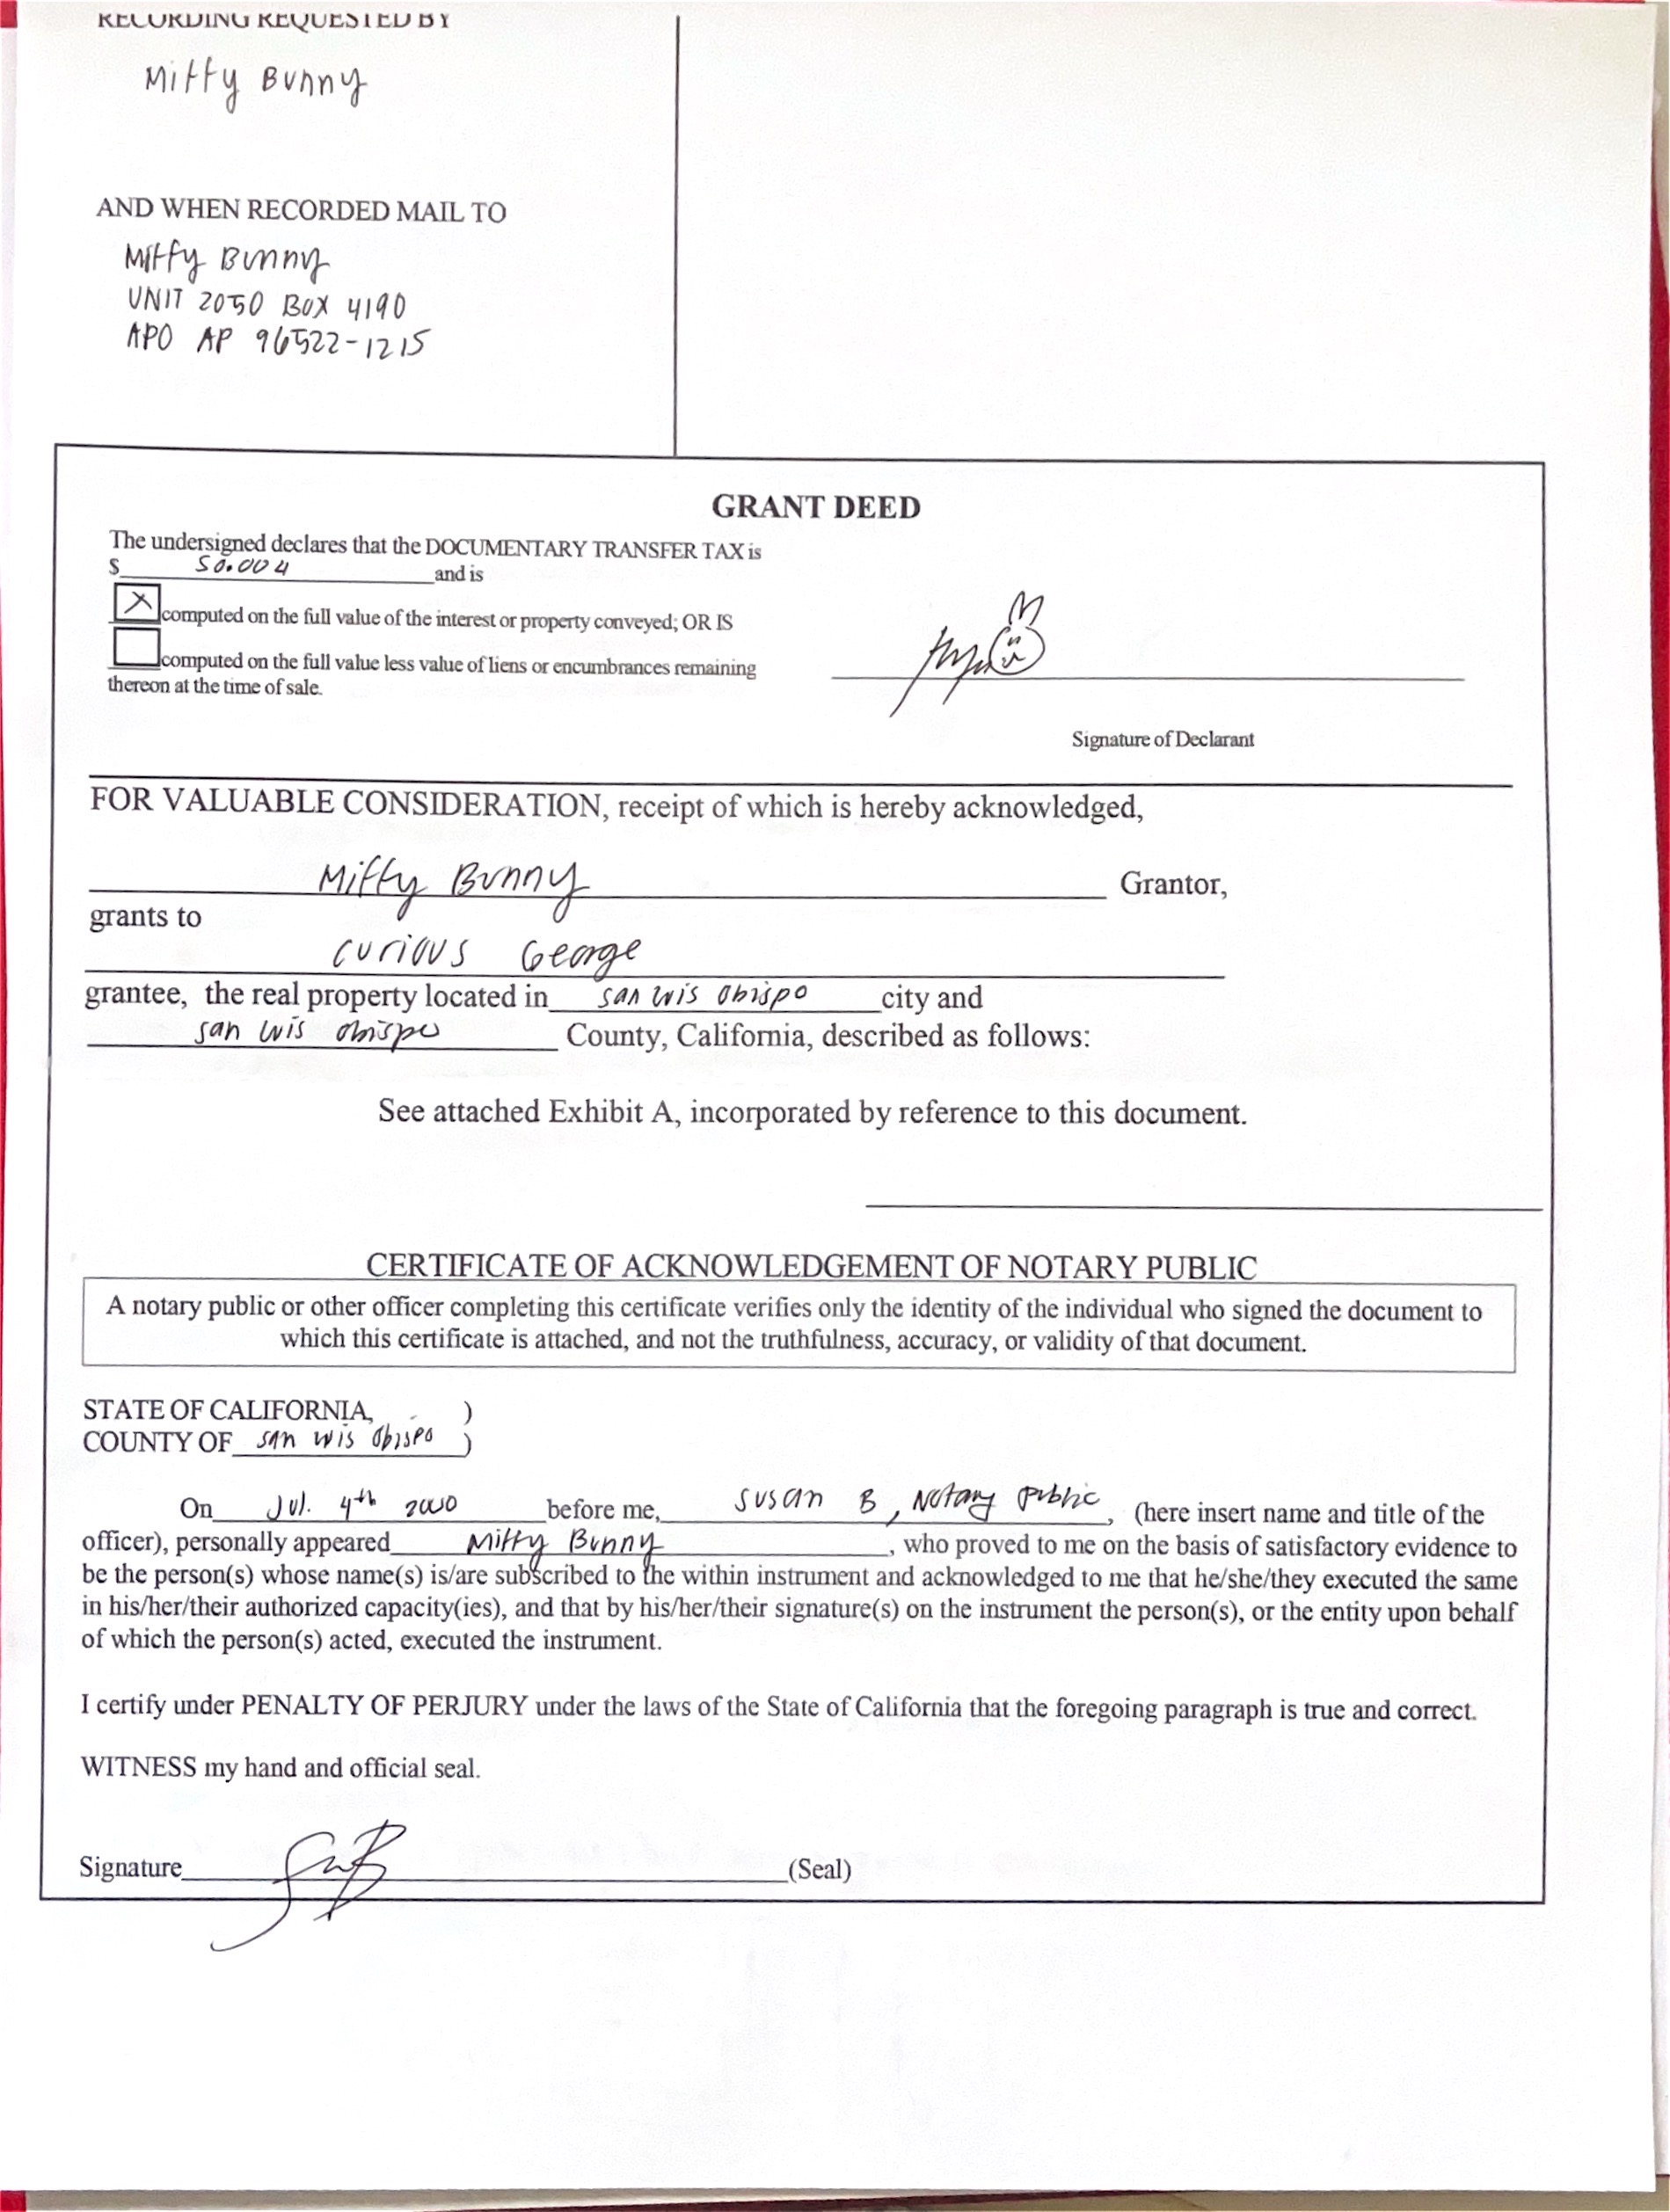 RECORDING REQUESTED BY
Miffy Bunny
AND WHEN RECORDED MAIL TO
Miffy Bunny
UNIT 2050 BOX 4190
APO AP 96522-1215
GRANT DEED
The undersigned declares that the DOCUMENTARY TRANSFER TAX is
$ 50.004 and is
X computed on the full value of the interest or property conveyed; OR IS
computed on the full value less value of liens or encumbrances remaining
thereon at the time of sale.
Signature of Declarant
FOR VALUABLE CONSIDERATION, receipt of which is hereby acknowledged,
Miffy Bunny Grantor,
grants to
curious George
grantee, the real property located in san luis obispo city and
san luis obispo County, California, described as follows:
See attached Exhibit A, incorporated by reference to this document.
CERTIFICATE OF ACKNOWLEDGEMENT OF NOTARY PUBLIC
A notary public or other officer completing this certificate verifies only the identity of the individual who signed the document to
which this certificate is attached, and not the truthfulness, accuracy, or validity of that document.
STATE OF CALIFORNIA, )
COUNTY OF san luis obispo )
On Jul. 4th 2000 before me, susan B, Notary public, (here insert name and title of the
officer), personally appeared Miffy Bunny, who proved to me on the basis of satisfactory evidence to
be the person(s) whose name(s) is/are subscribed to the within instrument and acknowledged to me that he/she/they executed the same
in his/her/their authorized capacity(ies), and that by his/her/their signature(s) on the instrument the person(s), or the entity upon behalf
of which the person(s) acted, executed the instrument.
I certify under PENALTY OF PERJURY under the laws of the State of California that the foregoing paragraph is true and correct.
WITNESS my hand and official seal.
Signature (Seal)